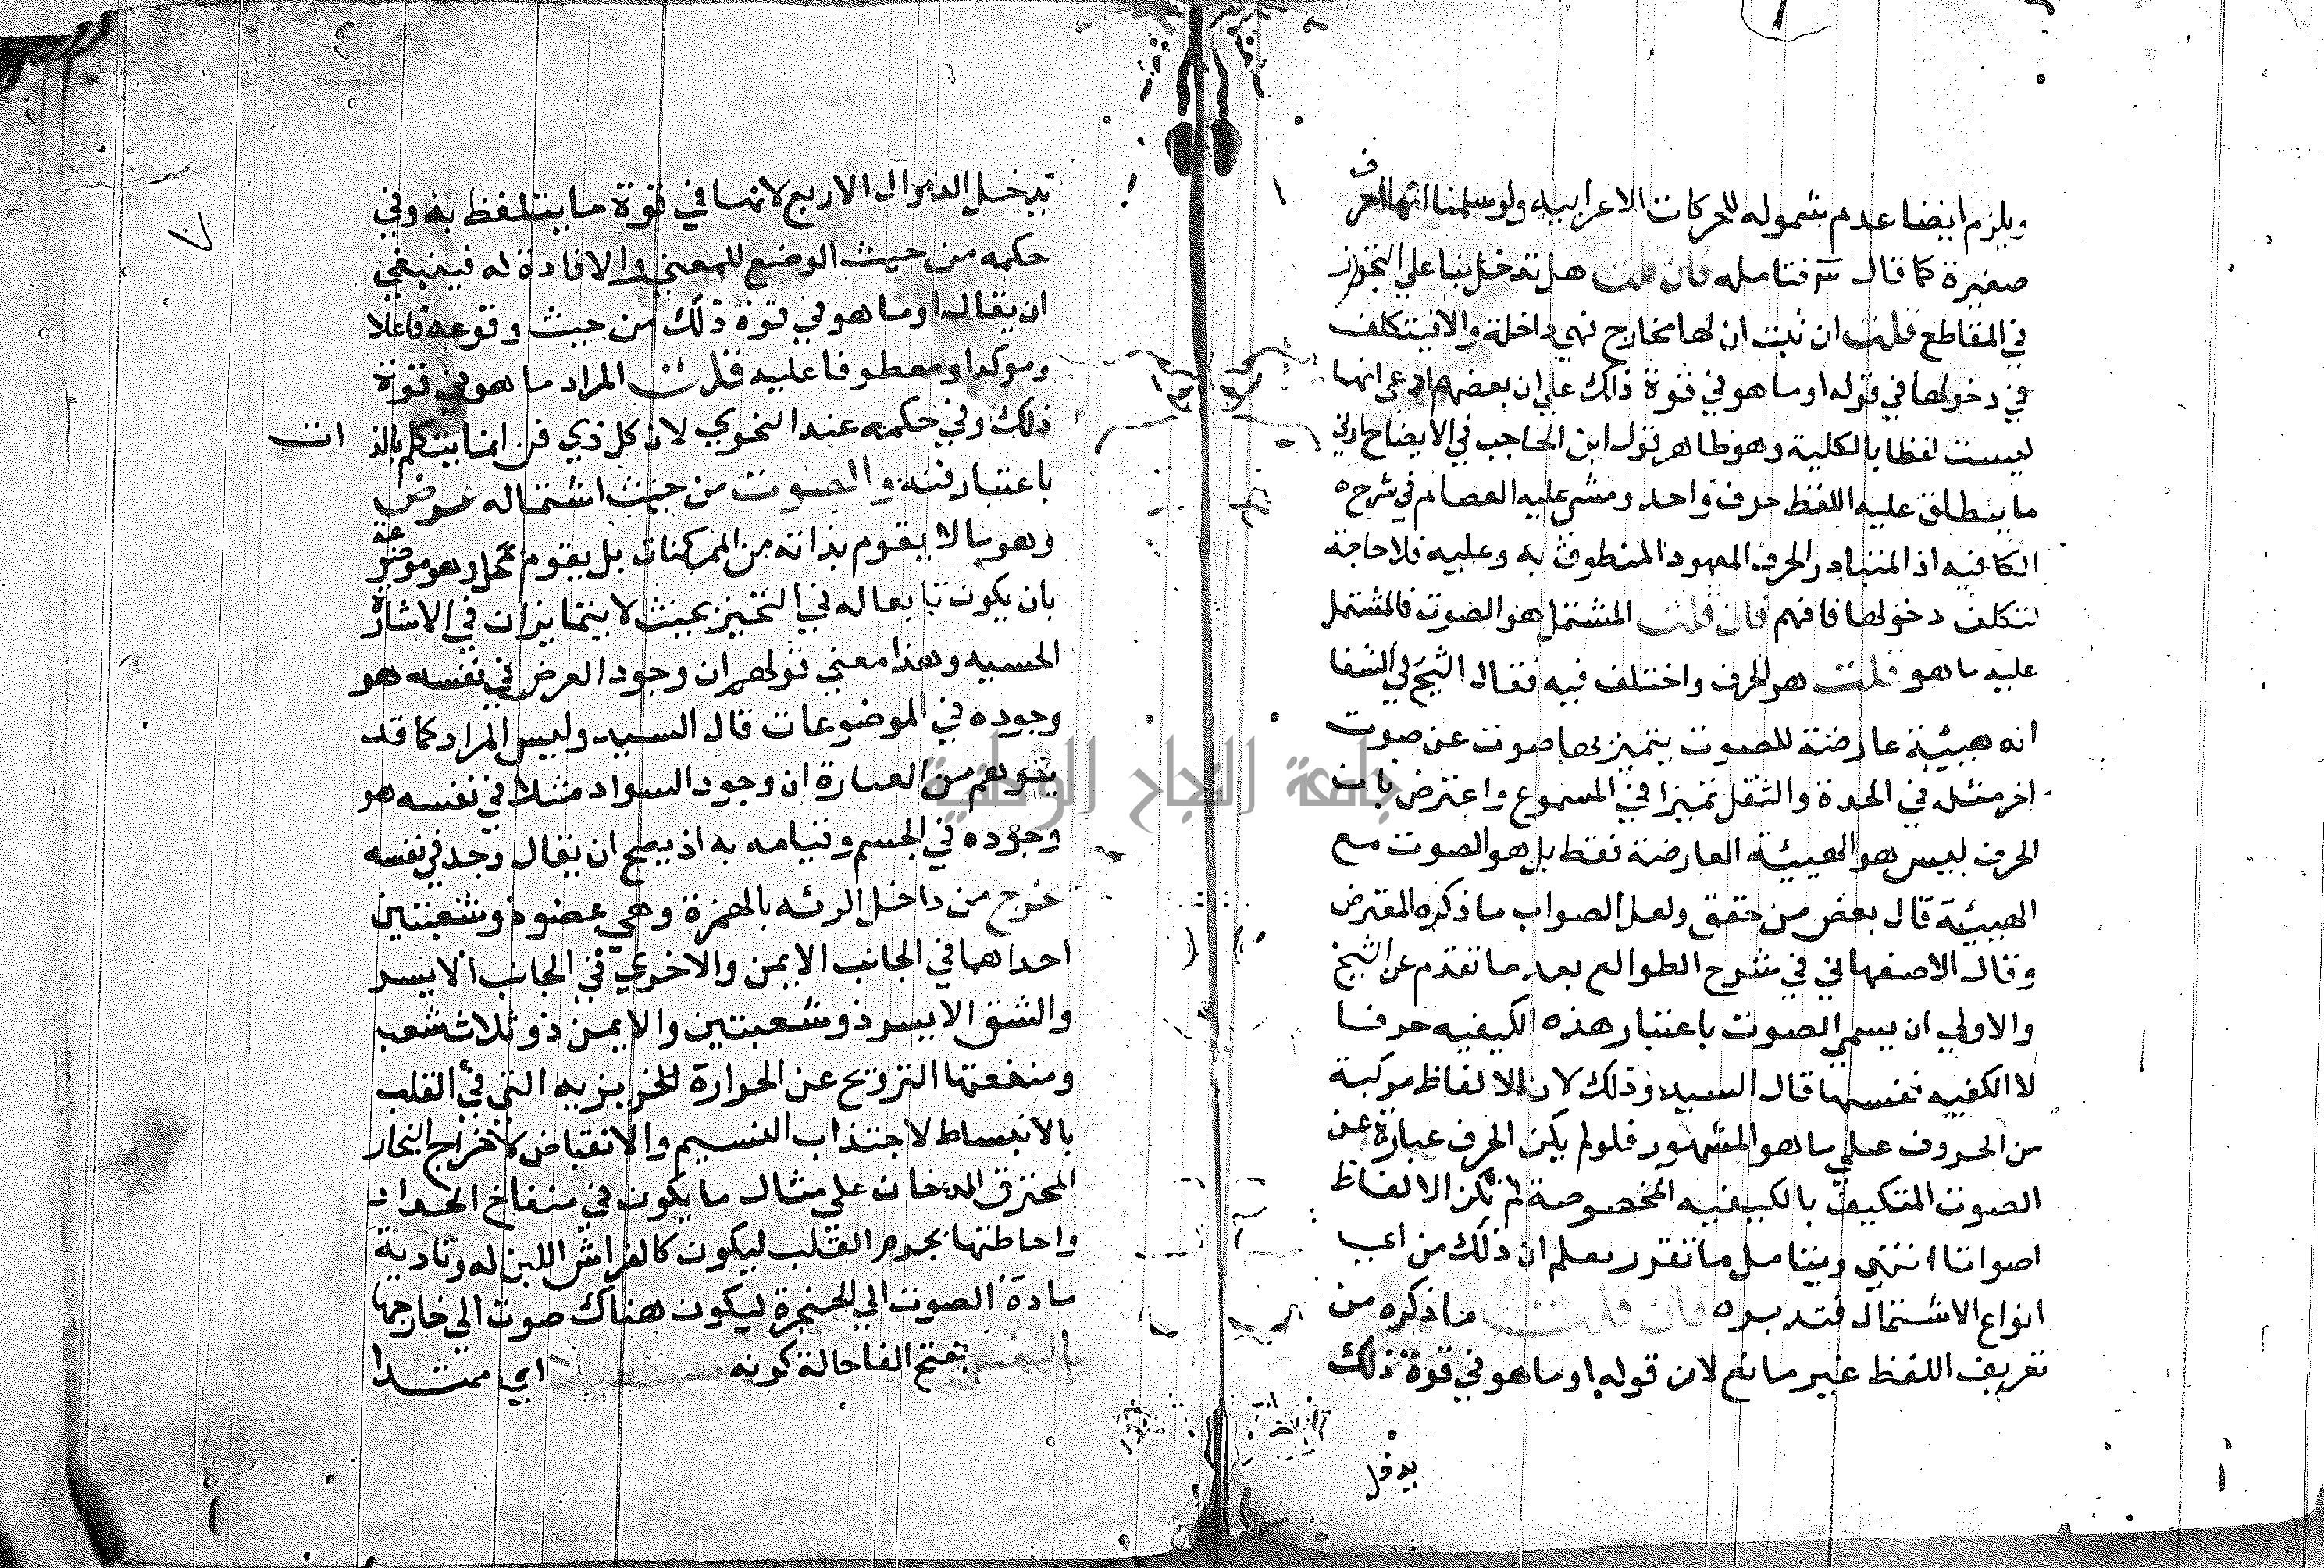 ويلزم ايضا عدم شموله للحركات الاعرابيه ولو سلمنا انها احرف
صغيرة كما قال فتامله فان قلت هل تدخل بنا علي التجوز
في المقاطع قلت ان ثبت ان لها مخارج فهي داخلة والا فيتكلف
في دخولها في قوله او ما هو في قوة ذلك علي ان بعضهم ادعي انها
ليست لفظا بالكلية وهو ظاهر قول ابن الحاجب في الايضاح
ما ينطلق عليه اللفظ حرف واحد ومشي عليه العصام في شرح
الكافيه اذ المتبادر الحرف المعهود المنطوق به وعليه فلا حاجة
لتكلف دخولها فافهم فان قلت المشتمل هو الصوت فالمشتمل
عليه ما هو قلت هو الحرف واختلف فيه فقال الشيخ في الشفا
انه هيئة عارضة للصوت يتميز بها صوت عن صوت
اخر مثله في الحدة والثقل تميزا في المسموع واعترض بان
الحرف ليس هو الهيئة العارضة فقط بل هو الصوت مع
الهيئة قال بعض من حقق ولعل الصواب ما ذكره المعترض
وقال الاصفهاني في شرح الطوالع بعد ما تقدم عن الشيخ
والاولي ان يسمي الصوت باعتبار هذه الكيفيه حرفا
لا الكفيه نفسها قال السيد وذلك لان الالفاظ مركبة
من الحروف علي ما هو المشهور فلو لم يكن الحرف عبارة عن
الصوت المتكيف بالكيفيه المخصوصة لم تكن الالفاظ
اصواتا انتهي وبتامل ما تقرر يعلم ان ذلك من اي
انواع الاشتمال فتدبره فان قلت ما ذكره من
تعريف اللفظ غير مانع لان قوله او ما هو في قوة ذلك
يدخل
٧
يدخل الدوال الاربع لانها في قوة ما يتلفظ به وفي
حكمه من حيث الوضع للمعني والافادة له فينبغي
ان يقال او ما هو في قوة ذلك من حيث وقوعه فاعلا
وموكدا ومعطوفا عليه قلت المراد ما هو في قوة
ذلك وفي حكمه عند النحوي لان كل ذي فن انما يتكلم بالذات
باعتبار فنه والصوت من حيث اشتماله عرض
وهو ما لا يقوم بذاته من الممكنات بل يقوم بمحل وهو موضوعه
بان يكون تابعا له في التحيز بحيث لا يتمايزان في الاشارة
الحسيه وهذا معني قولهم ان وجود العرض في نفسه هو
وجوده في الموضوعات قال السيد وليس المراد كما قد
يتوهم من العبارة ان وجود السواد مثلا في نفسه هو
وجوده في الجسم وقيامه به اذ يصح ان يقال وجد في نفسه
خرج من داخل الرئه بالهمزة وهي عضو ذو شعبتين
احداهما في الجانب الايمن والاخري في الجانب الايسر
والشق الايسر ذو شعبتين والايمن ذو ثلاث شعب
ومنفعتها الترويح عن الحرارة الغريزيه التي في القلب
بالانبساط لاجتذاب النسيم والانقباض لاخراج البخار
المحترق الدخان علي مثال ما يكون في منفاخ الحداد
واحاطتها بجرم القلب ليكون كالفراش اللين له وتادية
مادة الصوت الي الحنجرة ليكون هناك صوت الي خارجها
بالنفس بفتح الفا حالة كونه مستطيلا اي ممتدا
جامعة النجاح الوطنية